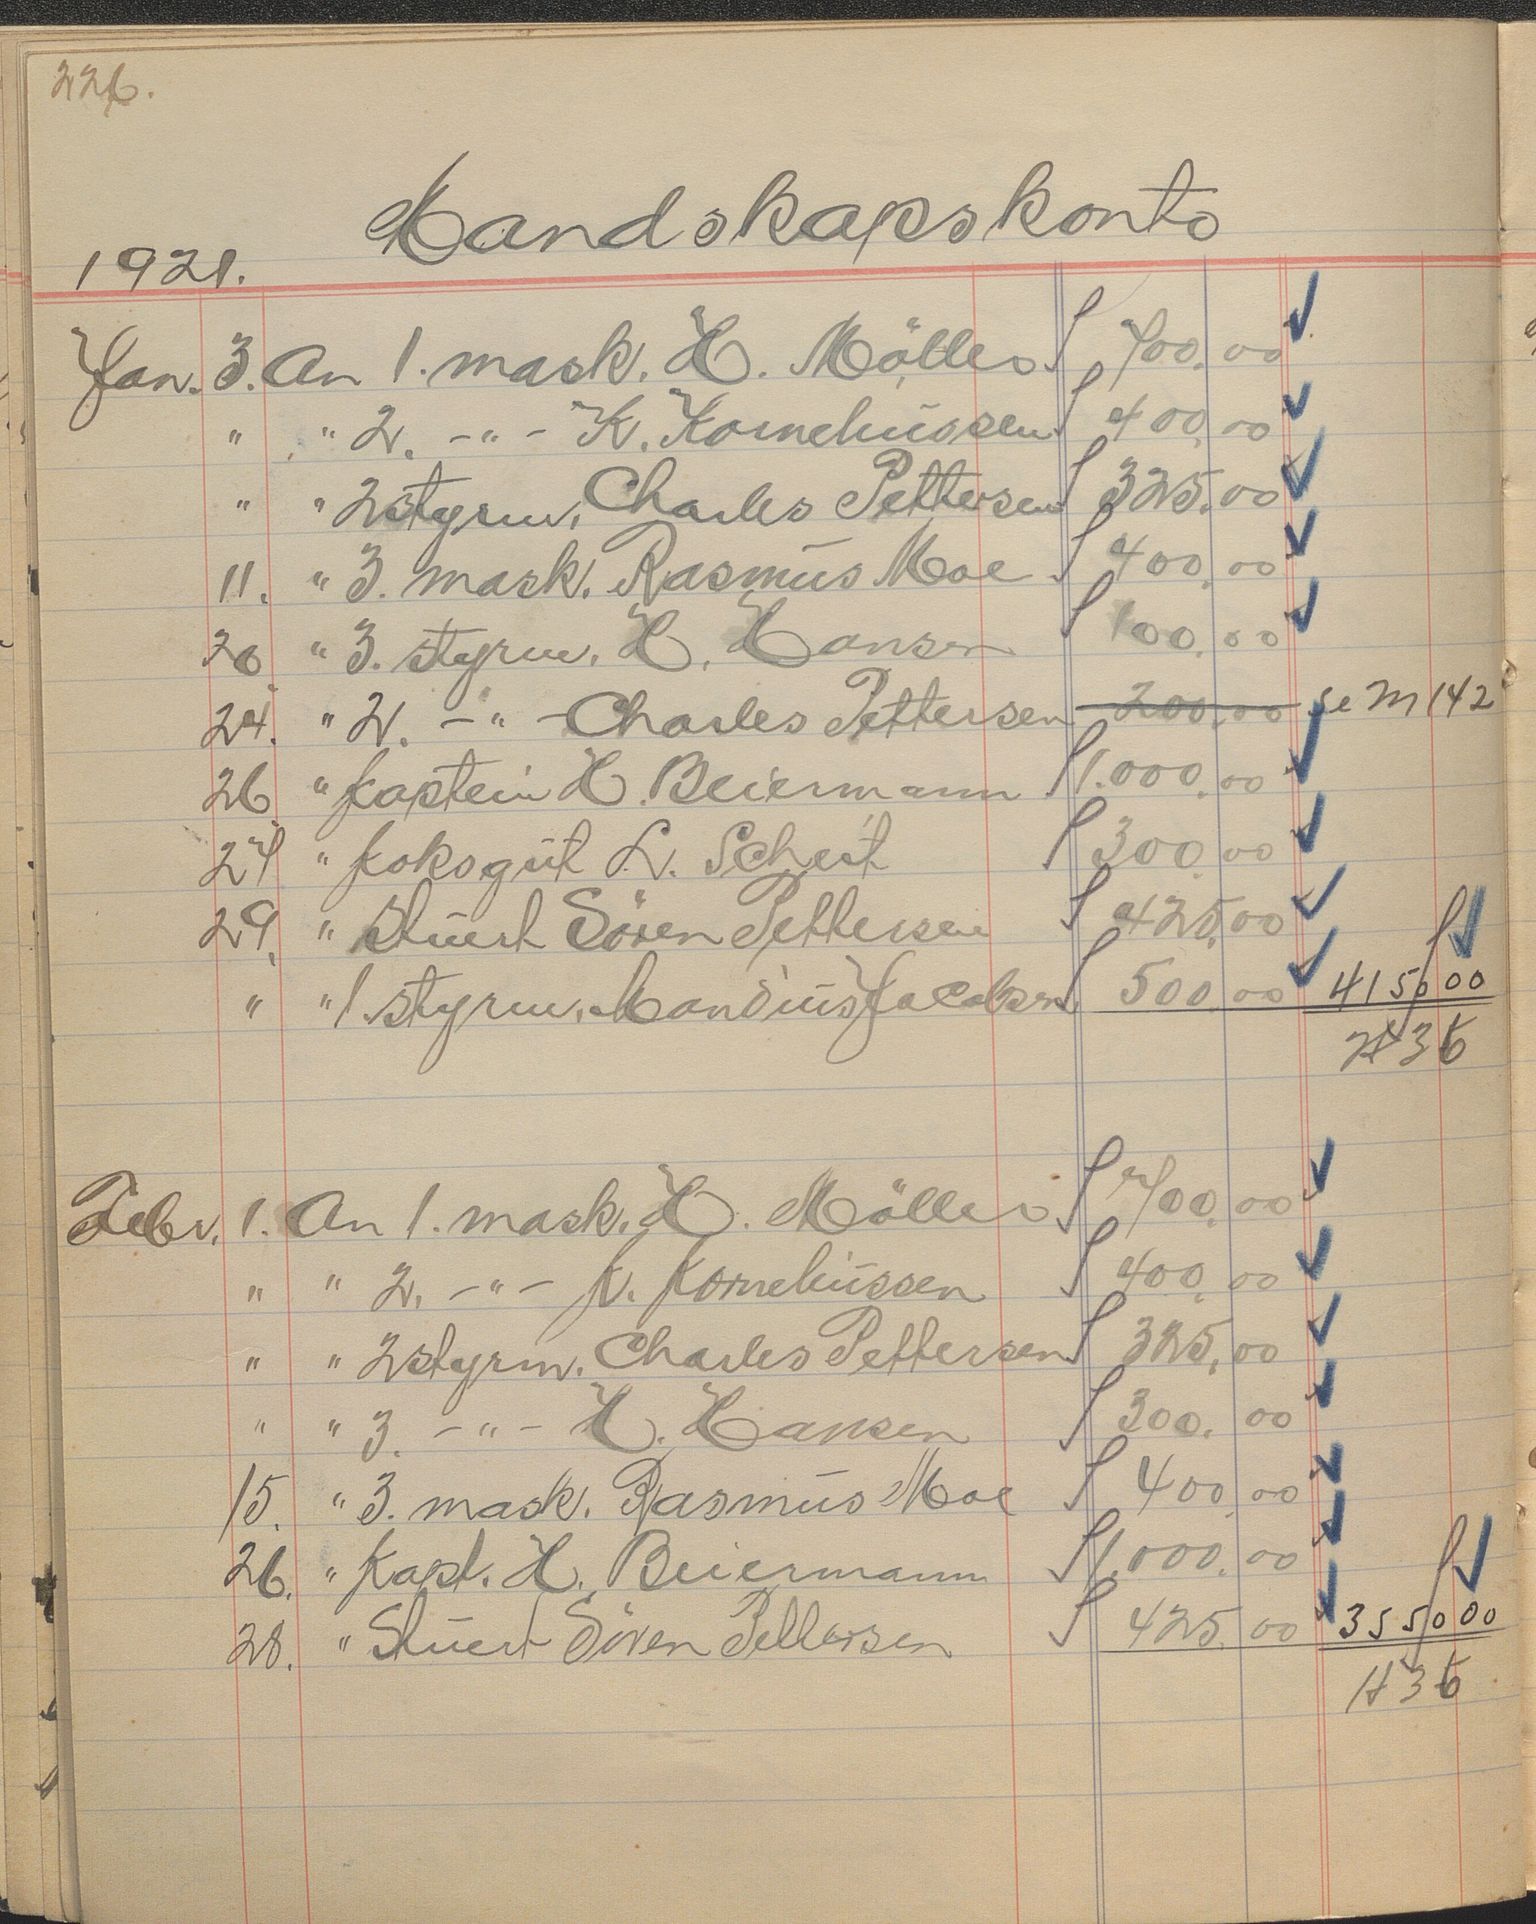 226.
Mandskapskonto
1921.
Jan. 3. An 1. mask. H. Möller 700.00
" " 2. -"- K. Korneliussen 400.00
" " 2 styrm. Charles Pettersen 325.00
11. " 3. mask. Rasmus Moe 400.00
20 " 3. styrm. H. Hansen 100.00
24. " 2. -"- Charles Pettersen 200.00 se M 142
26 " kaptein H. Beiermann 1.000.00
27 " koksgut L. 300.00
29. " Stuert Sören Pettersen 425.00
" " 1. styrm. Mandius Jacobsen 500.00 4150 00
36
Febr. 1. An 1. mask. H. Möller 700.00
" " 2. -"- K. Korneliussen 400.00
" " 2 styrm. Charles Pettersen 325.00
" " 3. -"- H. Hansen 300.00
15. " 3. mask. Rasmus Moe 400.00
26. " Kapt. H. Beiermann 1.000.00
28. " Stuert Sören Pettersen 425.00 3550 00
36